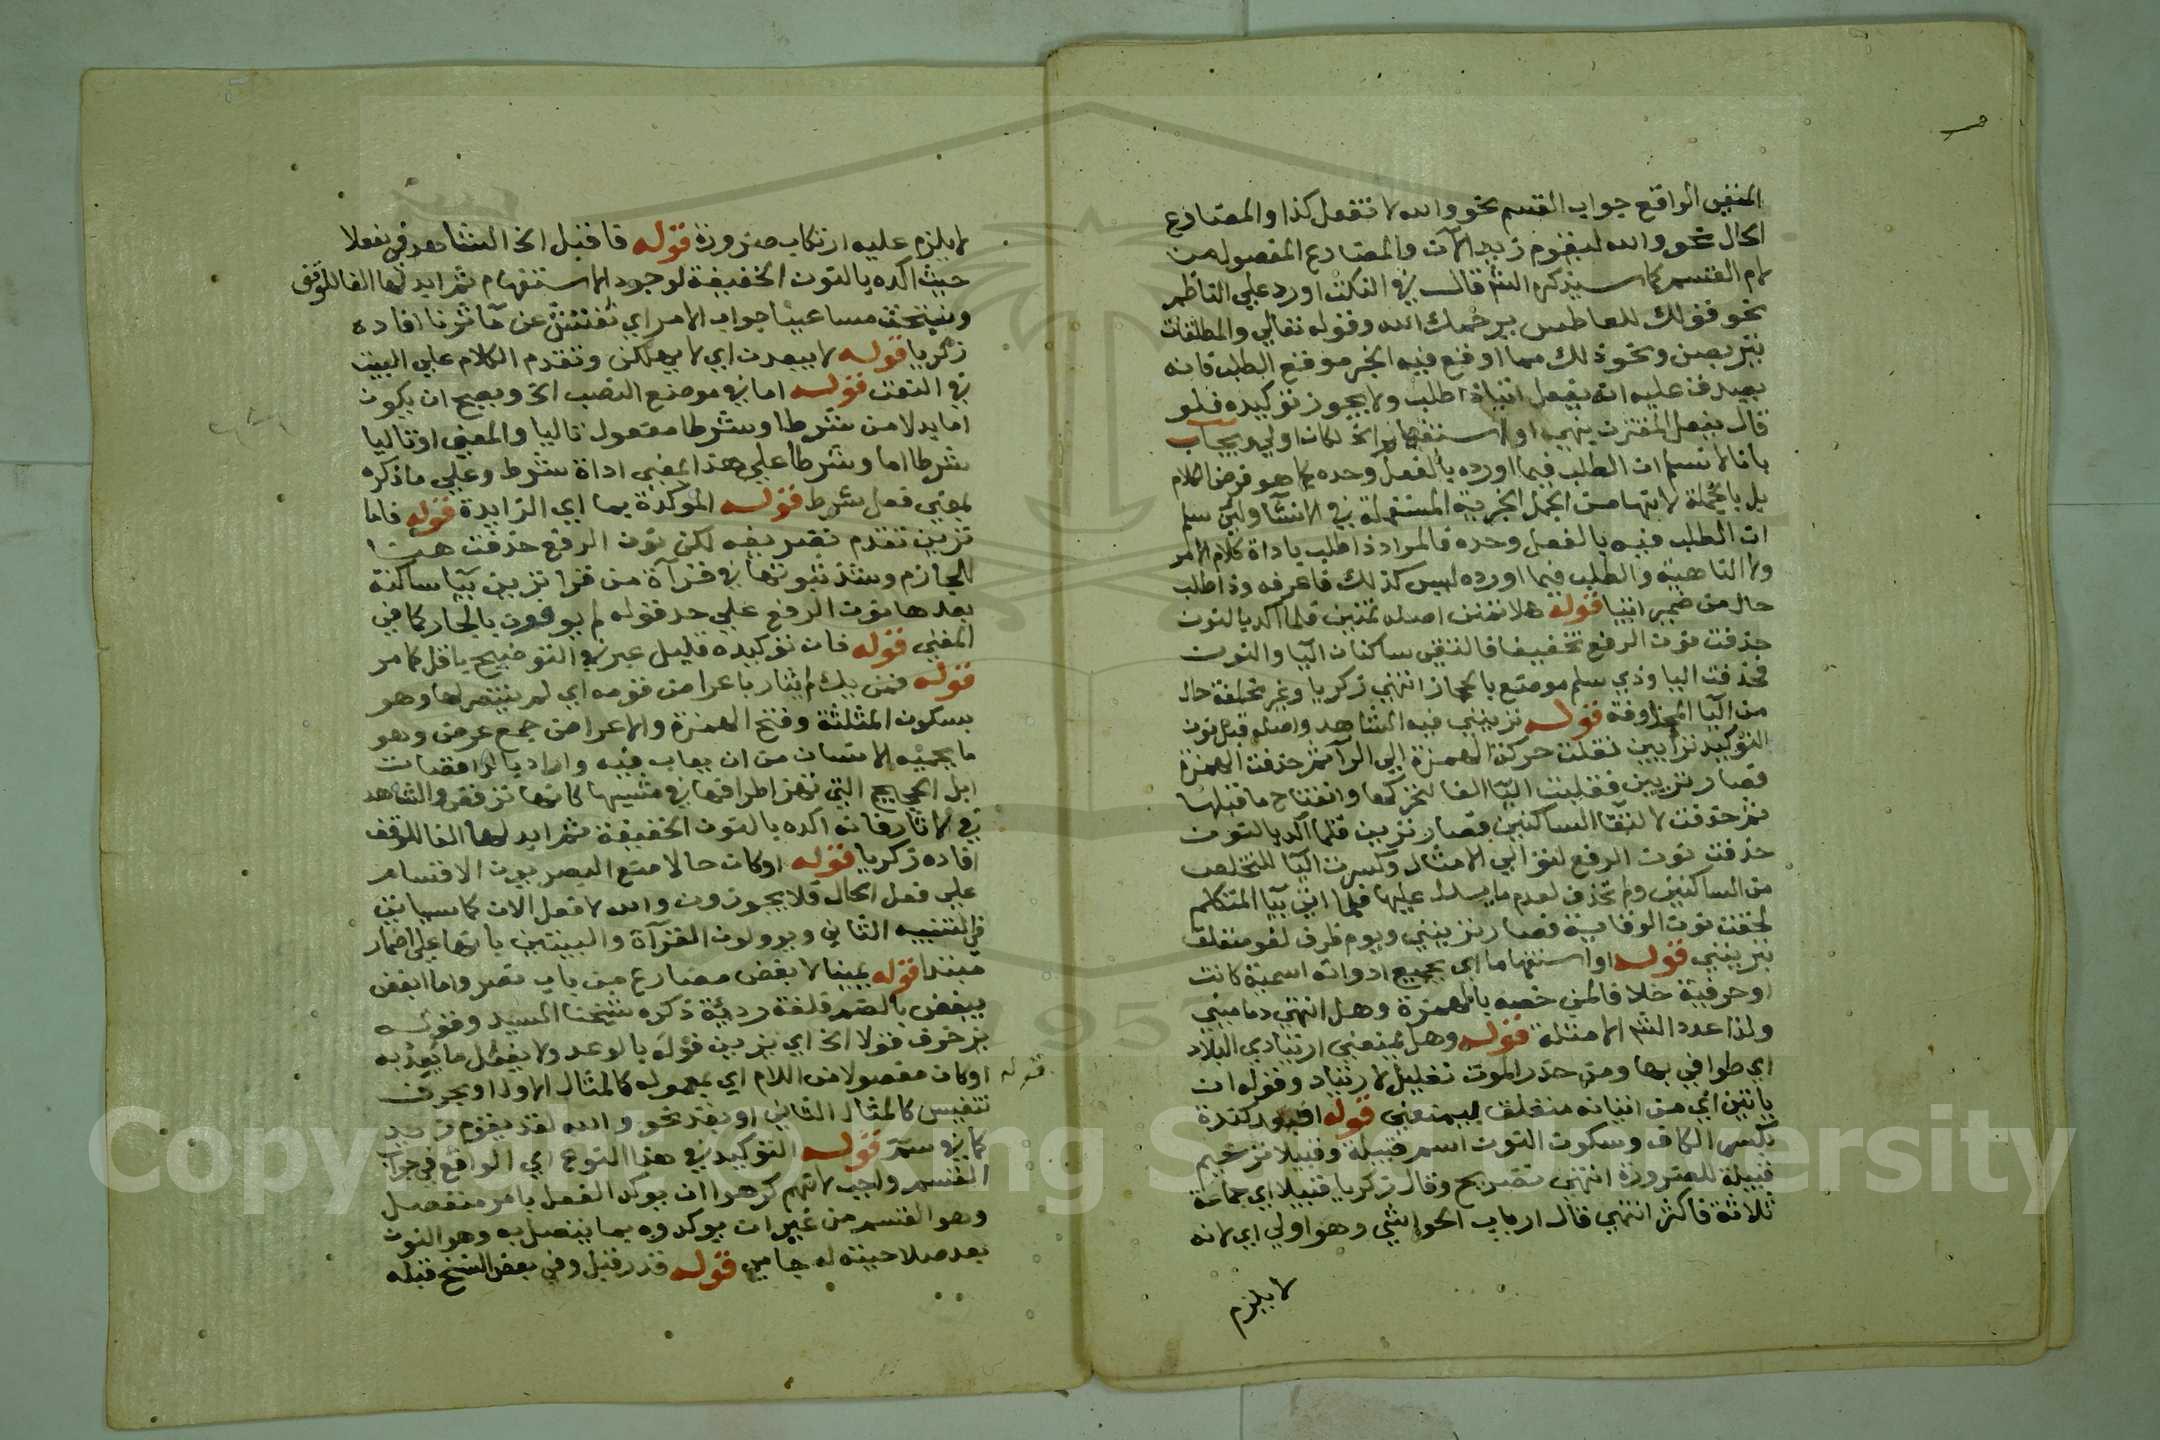 المنفي الواقع جواب القسم نحو والله لا تفعل كذا والمضارع
الحال نحو والله ليقوم زيد الآن والمضارع المفصول من
لام القسم كما سيذكره الشم قال في النكت اورد علي الناظم
نحو قولك للعاطس يرحمك الله وقوله تعالي والمطلقات
يتربصن ونحو ذلك مما اوقع فيه الخبر موقع الطلب فانه
يصدق عليه انه يفعل اتياذا طلب ولا يجوز توكيده فلو
قال يفعل المقترن بنهي او لاستفهام الخ لكان اولي ويجاب
بانا لا نسلم ان الطلب فيما اورده بالفعل وحده كما هو فرض الكلام
بل بالجملة لانها من الجمل الخبرية المستعملة في الانشا ولئن سلم
ان الطلب فيه بالفعل وحده فالمراد ذا طلب باداة كلام الامر
ولا الناهية والطلب فيما اورده ليس كذلك فاعرفه وذا طلب
حال من ضمير اتيا قوله هلا تمنن اصله تمنين فلما اكد بالنون
حذفت نون الرفع تخفيفا فالتقي ساكنان اليا والنون
فحذفت اليا وذي سلم موضع بالحجاز انتهي زكريا وغير مخلفة حال
من اليا المحذوفة قوله ترينني فيه الشاهد واصله قبل نون
التوكيد ترأيين نقلت حركة الهمزة الي الرا ثم حذفت الهمزة
فصار تريين فقلبت اليا الفا لتحركها وانفتاح ما قبلها
ثم حذفت لالتقا الساكنين فصار ترين فلما اكد بالنون
حذفت نون الرفع لتوالي الامثال وكسرت اليا للتخلص
من الساكنين ولم تحذف لعدم ما يدل عليها فلما اتي بيا المتكلم
لحقت نون الوقاية فصار ترينني ويوم ظرف لغو متعلق
بترينني قوله او استفهاما اي بجميع ادواته اسمية كانت
او حرفية خلافا لمن خصه بالهمزة وهل انتهي دماميني
ولذا عدد الشم الامثلة قوله وهل يمنعني ارتيادي البلاد
اي طوافي بها ومن حذر الموت تعليل لارتياد وقوله ان
ياتين اي من اتيانه متعلق بيمنعني قوله افبعد كندة
بكسر الكاف وسكون النون اسم قبيلة وقبيلا ترخيم
قبيلة للضرورة انتهي تصريح وقال زكريا قبيلا اي جماعة
ثلاثة فاكثر انتهي قال ارباب الحواشي وهو اولي اي لانه
لا يلزم
لا يلزم عليه ارتكاب ضرورة قوله فاقبل الخ الشاهد في تفعلا
حيث اكده بالنون الخفيفة لوجود الاستفهام ثم ابدلها الفا للوقف
ونبتحث مساعينا جواب الامر اي نفتش عن مآثرنا افاده
زكريا قوله لا يبعدن اي لا يهلكن وتقدم الكلام علي البيت
في النعت قوله اما في موضع النصب الخ ويصح ان يكون
اما بدلا من شرطا وشرطا مفعول تاليا والمعني او تاليا
شرطا اما وشرطا علي هذا المعني اداة شرط وعلي ما ذكره
بمعني فعل شرط قوله المؤكدة بما اي الزايدة قوله فاما
ترين تقدم تصريفه لكن نون الرفع حذفت هنا
للجازم وشذ ثبوتها في قرآة من قرا ترين بيا ساكنة
بعدها نون الرفع علي حد قوله لم يوفون بالجار كما في
المغني قوله فان توكيده قليل عبر في التوضيح باقل كما مر
قوله فمن يك لم يثار باعراض قومه اي لم ينتصر لها وهو
بسكون المثلثة وفتح الهمزة والاعراض جمع عرض وهو
ما يحميه الانسان من ان يعاب فيه واراد بالراقصات
ابل الحجيج التي تهز اطرافها في مشيها كانها ترقص والشاهد
في لاثارا فانه اكده بالنون الخفيفة ثم ابدلها الفا للوقف
افاده زكريا قوله او كان حالا منع البصريون الاقسام
علي فعل الحال فلا يجوزون والله لافعل الان كما سياتي
في التنبيه الثاني ويوولون القرآة والبيتين بانها علي اضمار
مبتدا قوله يمينا لابغض مضارع من باب نصر واما ابغض
يبغض بالضم فلغة رديئة ذكره شيخنا السيد وقوله
يزخرف قولا الخ اي يزين قوله بالوعد ولا يفعل ما يعد به
قوله او كان مفصولا من اللام اي بمعموله كالمثال الاول او بحرف
تنفيس كالمثال الثاني او بقد نحو والله لقد يقوم زيد
كما في سم قوله التوكيد في هذا النوع اي الواقع في جواب
القسم واجب لانهم كرهوا ان يوكد الفعل بامر منفصل
وهو القسم من غير ان يوكدوه بما يتصل به وهو النون
بعد صلاحيته له جامي قوله قدر قبل وفي بعض النسخ قبله